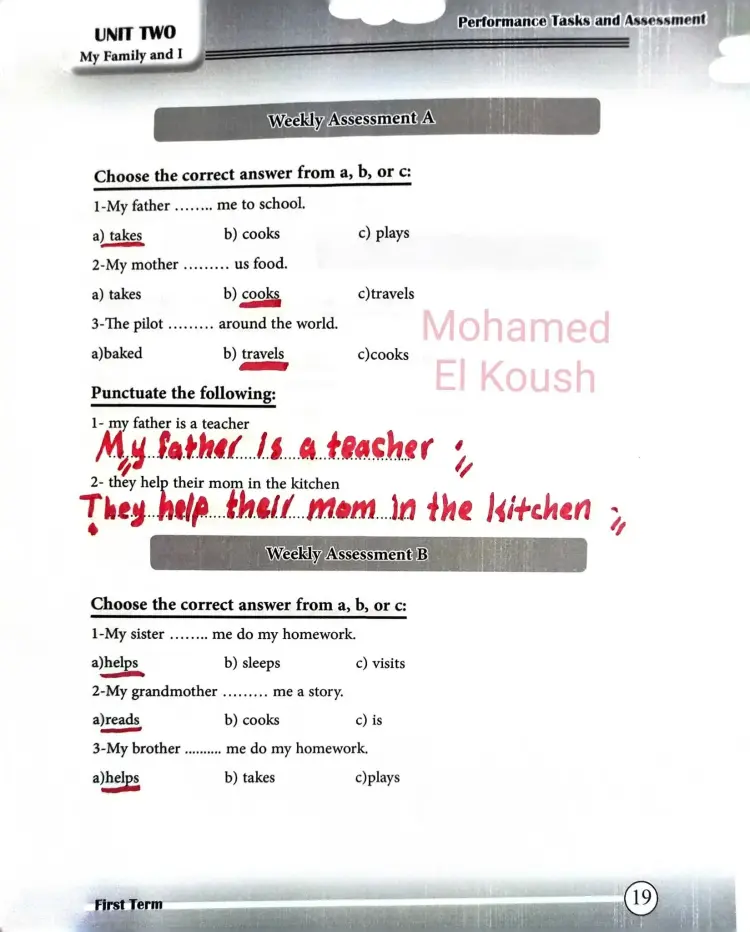 UNIT TWO
My Family and I
Performance Tasks and Assessment
Weekly Assessment A
Choose the correct answer from a, b, or c:
1-My father ........ me to school.
a) takes b) cooks c) plays
2-My mother ......... us food.
a) takes b) cooks c)travels
3-The pilot ......... around the world.
a)baked b) travels c)cooks
Mohamed
El Koush
Punctuate the following:
1- my father is a teacher
My father is a teacher .
2- they help their mom in the kitchen
They help their mom in the kitchen .
Weekly Assessment B
Choose the correct answer from a, b, or c:
1-My sister ........ me do my homework.
a)helps b) sleeps c) visits
2-My grandmother ......... me a story.
a)reads b) cooks c) is
3-My brother .......... me do my homework.
a)helps b) takes c)plays
First Term
19